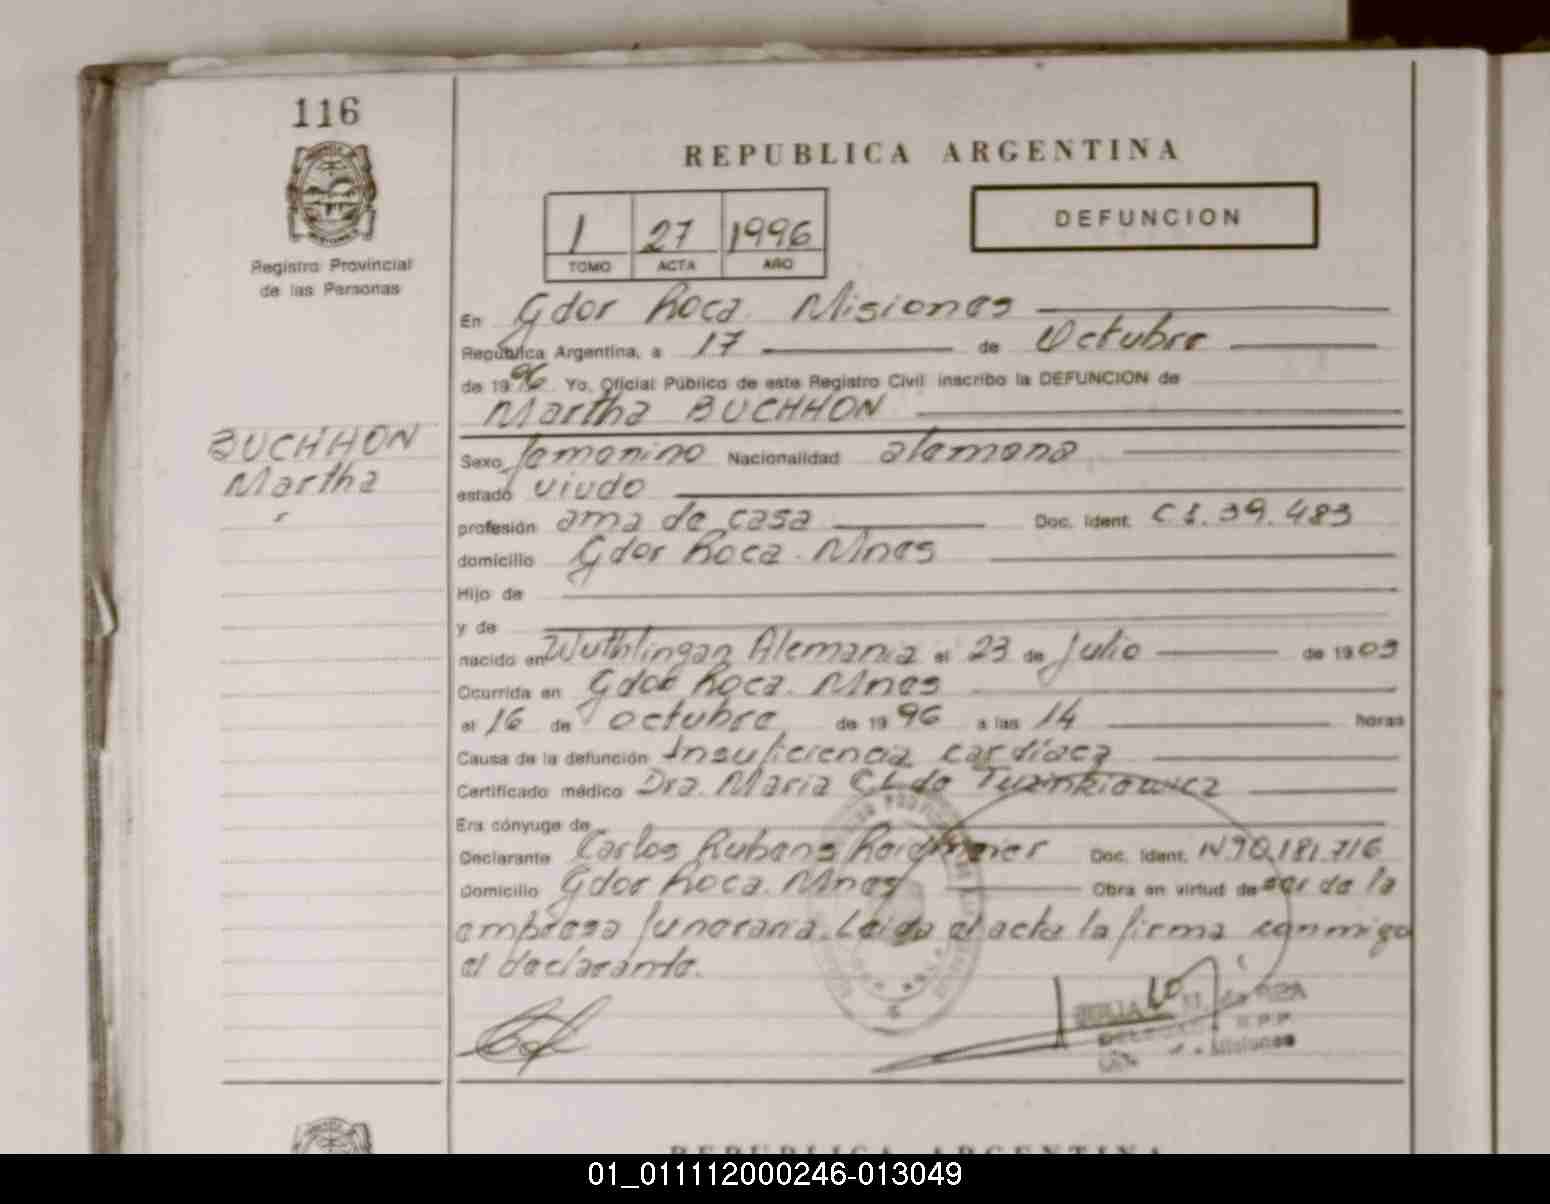 116
REPUBLICA ARGENTINA
DEFUNCION
1 27 1996
TOMO ACTA AÑO
Registro Provincial
de las Personas
En Gdor Roca. Misiones
República Argentina, a 17 de Octubre
de 1996. Yo, Oficial Público de este Registro Civil inscribo la DEFUNCION de
Martha BUCHHON
BUCHHON
Martha
Sexo femenino Nacionalidad alemana
estado viudo
profesión ama de casa Doc. Ident. C.I. 39.483
domicilio Gdor Roca. Mnes
Hijo de
y de
nacido en Wuthlingan Alemania el 23 de Julio de 1909
Ocurrida en Gdor Roca. Mnes
el 16 de octubre de 1996 a las 14 horas
Causa de la defunción Insuficiencia cardíaca
Certificado médico Dra. Maria Cl. de
Era cónyuge de
Declarante Carlos Rubens Doc. Ident. Nº 90.181.716
Domicilio Gdor Roca. Mnes Obra en virtud de ser de la
empresa funeraria. Leida el acta la firma conmigo
el declarante.
REPUBLICA ARGENTINA
01_011112000246-013049